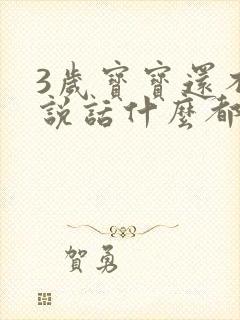 3歲寶寶還不
說話什麼都
賀勇